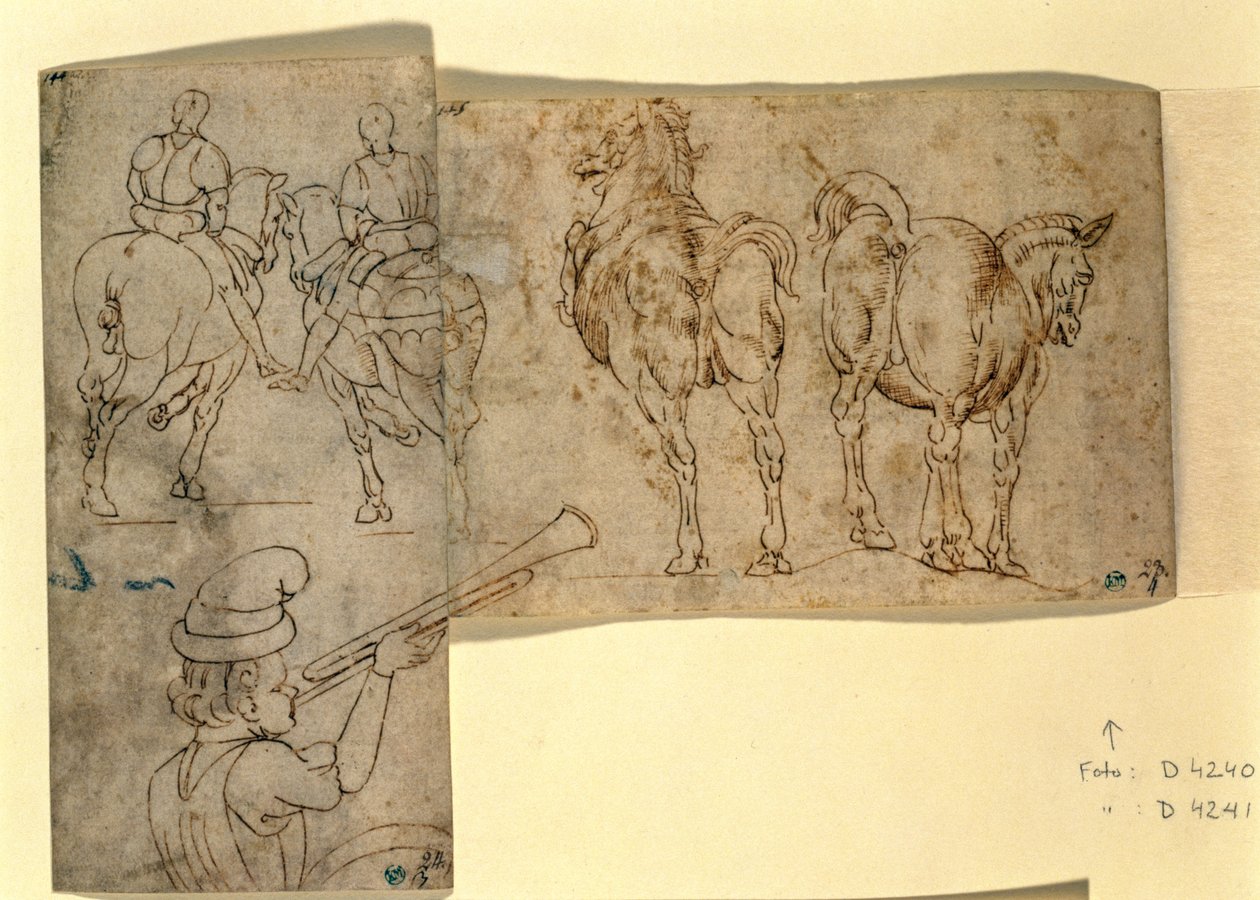 144
145
23.
4
24.
3
KM
KM
↑
Foto: D 4240
" : D 4241